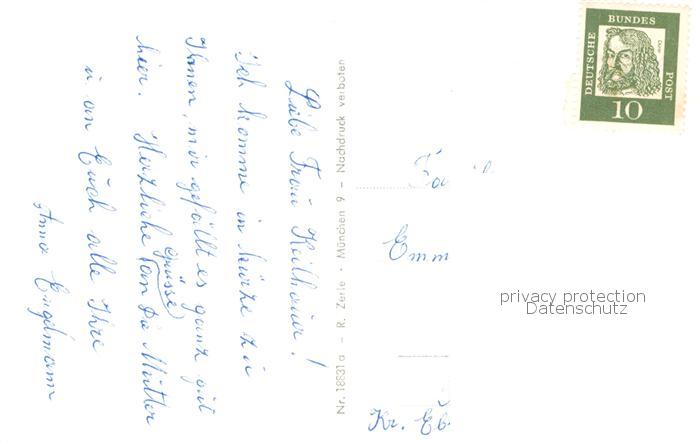 Liebe Frau Keilhauer!
Ich komme in Kürze zu
Ihnen, mir gefällt es ganz gut
hier. Herzliche Grüsse an Die Mutter
u an Euch alle Ihre
Anna Engelmann
Nr. 18831a - R. Zerle · München 9 - Nachdruck verboten
DEUTSCHE
BUNDES
POST
Dürer
10
Fa
Emm
Kr. Eb
privacy protection
Datenschutz